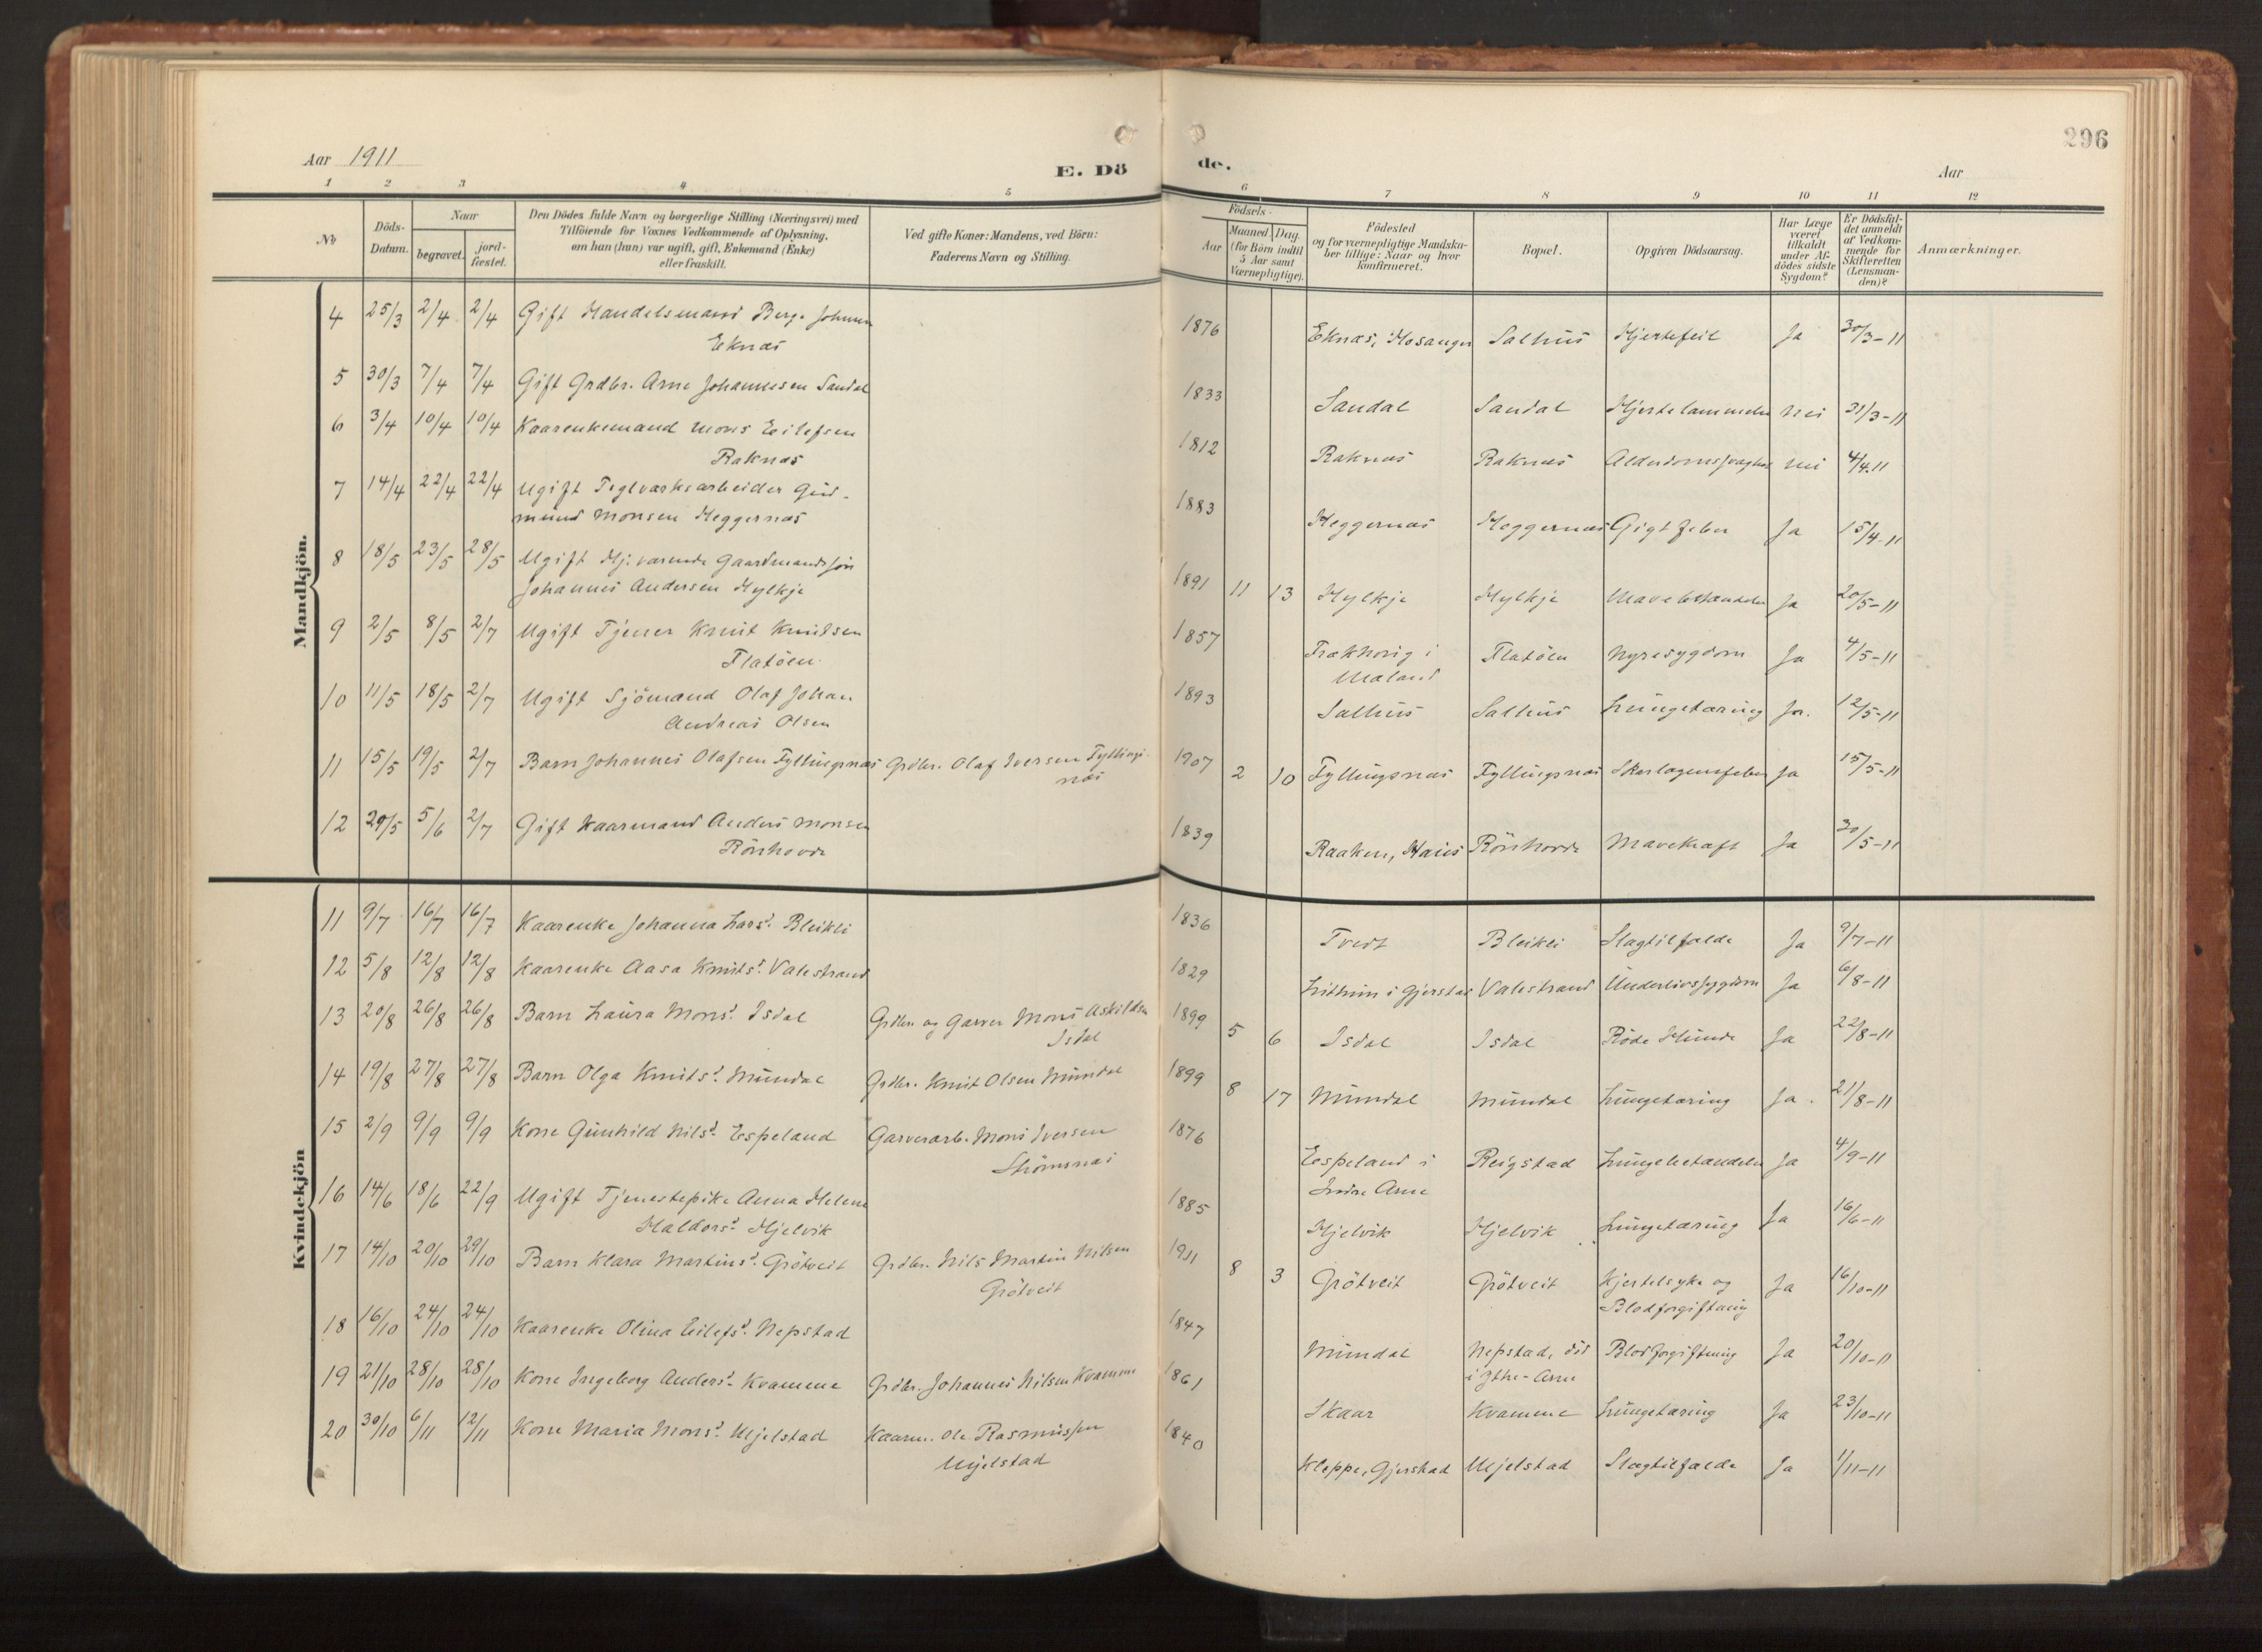 296
Aar 1911
E. Dö
de.
Aar
1 2 3 4 5 6 7 8 9 10 11 12
No
Döds-Datum.
Naar
begravet.
jord-fæstet.
Den Dödes fulde Navn og borgerlige Stilling (Næringsvei) med
Tilföiende for Voxnes Vedkommende af Oplysning,
om han (hun) var ugift, gift, Enkemand (Enke)
eller fraskilt.
Ved gifte Koner: Mandens, ved Börn:
Faderens Navn og Stilling.
Födsels-
Aar
Maaned. Dag.
(for Börn indtil
5 Aar samt
Værnepligtige).
Födested
og for værnepligtige Mandska-
ber tillige: Naar og hvor
konfirmeret.
Bopæl.
Opgiven Dödsaarsag.
Har Læge
været
tilkaldt
under Af-
dödes sidste
Sygdom?
Er Dödsfal-
det anmeldt
af Vedkom-
mende for
Skifteretten
(Lensman-
den)?
Anmærkninger.
Mandkjön.
4 25/3 2/4 2/4 Gift Handelsmand Berge Johnsen 1876 Eknæs, Hosanger Salhus Hjertefeil Ja 30/3-11
Eknæs
5 30/3 7/4 7/4 Gift Grdbr. Arne Johannessen Sandal 1833 Sandal Sandal Hjertelammelse nei 31/3-11
6 3/4 10/4 10/4 Kaarenkemand Mons Eilefsen 1812 Raknæs Raknæs Alderdomssvaghed nei 4/4.11
Raknæs
7 14/4 22/4 22/4 Ugift Teglværksarbeider Gud- 1883 Heggernæs Heggernæs Gigtfeber Ja 15/4-11
mund Monsen Heggernæs
8 18/5 23/5 28/5 Ugift Hj. værende Gaardmandssön 1891 11 13 Hylkje Hylkje Mavebetændelse Ja 20/5-11
Johannes Andersen Hylkje
9 2/5 8/5 2/7 Ugift Tjener Knut Knudsen 1857 i Flatöen Nyresygdom Ja 4/5-11
Flatöen
10 11/5 18/5 2/7 Ugift Sjömand Olaf Johan 1893 Salhus Salhus Lungetæring Ja. 12/5-11
Andreas Olsen
11 15/5 19/5 2/7 Barn Johannes Olafsen Fyllingsnæs Grdbr. Olaf Iversen Fyllings- 1907 2 10 Fyllingsnæs Fyllingsnæs Skarlagensfeber Ja 15/5-11
næs
12 29/5 5/6 2/7 Gift Kaarmand Anders Monsen 1839 Raaken, Haus Rönhovde Mavekræft Ja 30/5-11
Rönhovde
Kvindekjön
11 9/7 16/7 16/7 Kaarenke Johanna Larsd. Bleikli 1836 Tvedt Bleikli Slagtilfælde Ja 9/7-11
12 5/8 12/8 12/8 Kaarenke Aasa Knutsd. Valestrand 1829 i Gjerstad Valestrand Underlivssygdom Ja 6/8-11
13 20/8 26/8 26/8 Barn Laura Monsd. Isdal Grdbr. og Garver Mons Askildsen 1899 5 6 Isdal Isdal Röde Hunde Ja 22/8-11
Isdal
14 19/8 27/8 27/8 Barn Olga Knutsd. Mundal Grdbr. Knut Olsen Mundal 1899 8 17 Mundal Mundal Lungetæring Ja. 21/8-11
15 2/9 9/9 9/9 Kone Gunhild Nilsd. Espeland Garverarb. Mons Iversen 1876 Espeland i Reigstad Lungebetændelse Ja 4/9-11
Strömsnæs Indre Arne
16 14/6 18/6 22/9 Ugift Tjenestepike Anna Helene 1885 Hjelvik Hjelvik Lungetæring Ja 16/6-11
Haldorsd. Hjelvik
17 14/10 20/10 29/10 Barn Klara Martinsd. Grötveit Grdbr. Nils Martin Nilsen 1911 8 3 Grötveit Grötveit Kjertelsyke og Ja 16/10-11
Grötveit Blodforgiftning
18 16/10 24/10 24/10 Kaarenke Olina Eilefsd. Nepstad 1847 Mundal Nepstad, död Blodforgiftning Ja 20/10-11
i Ytre-Arne
19 21/10 28/10 28/10 Kone Ingeborg Andersd. Kvamme Grdbr. Johannes Nilsen Kvamme 1861 Skaar Kvamme Lungetæring Ja 23/10-11
20 30/10 6/11 12/11 Kone Maria Monsd. Mjelstad Kaarm. Ole Rasmussen 1840 Kleppe, Gjerstad Mjelstad Slagtilfælde Ja 1/11-11
Mjelstad